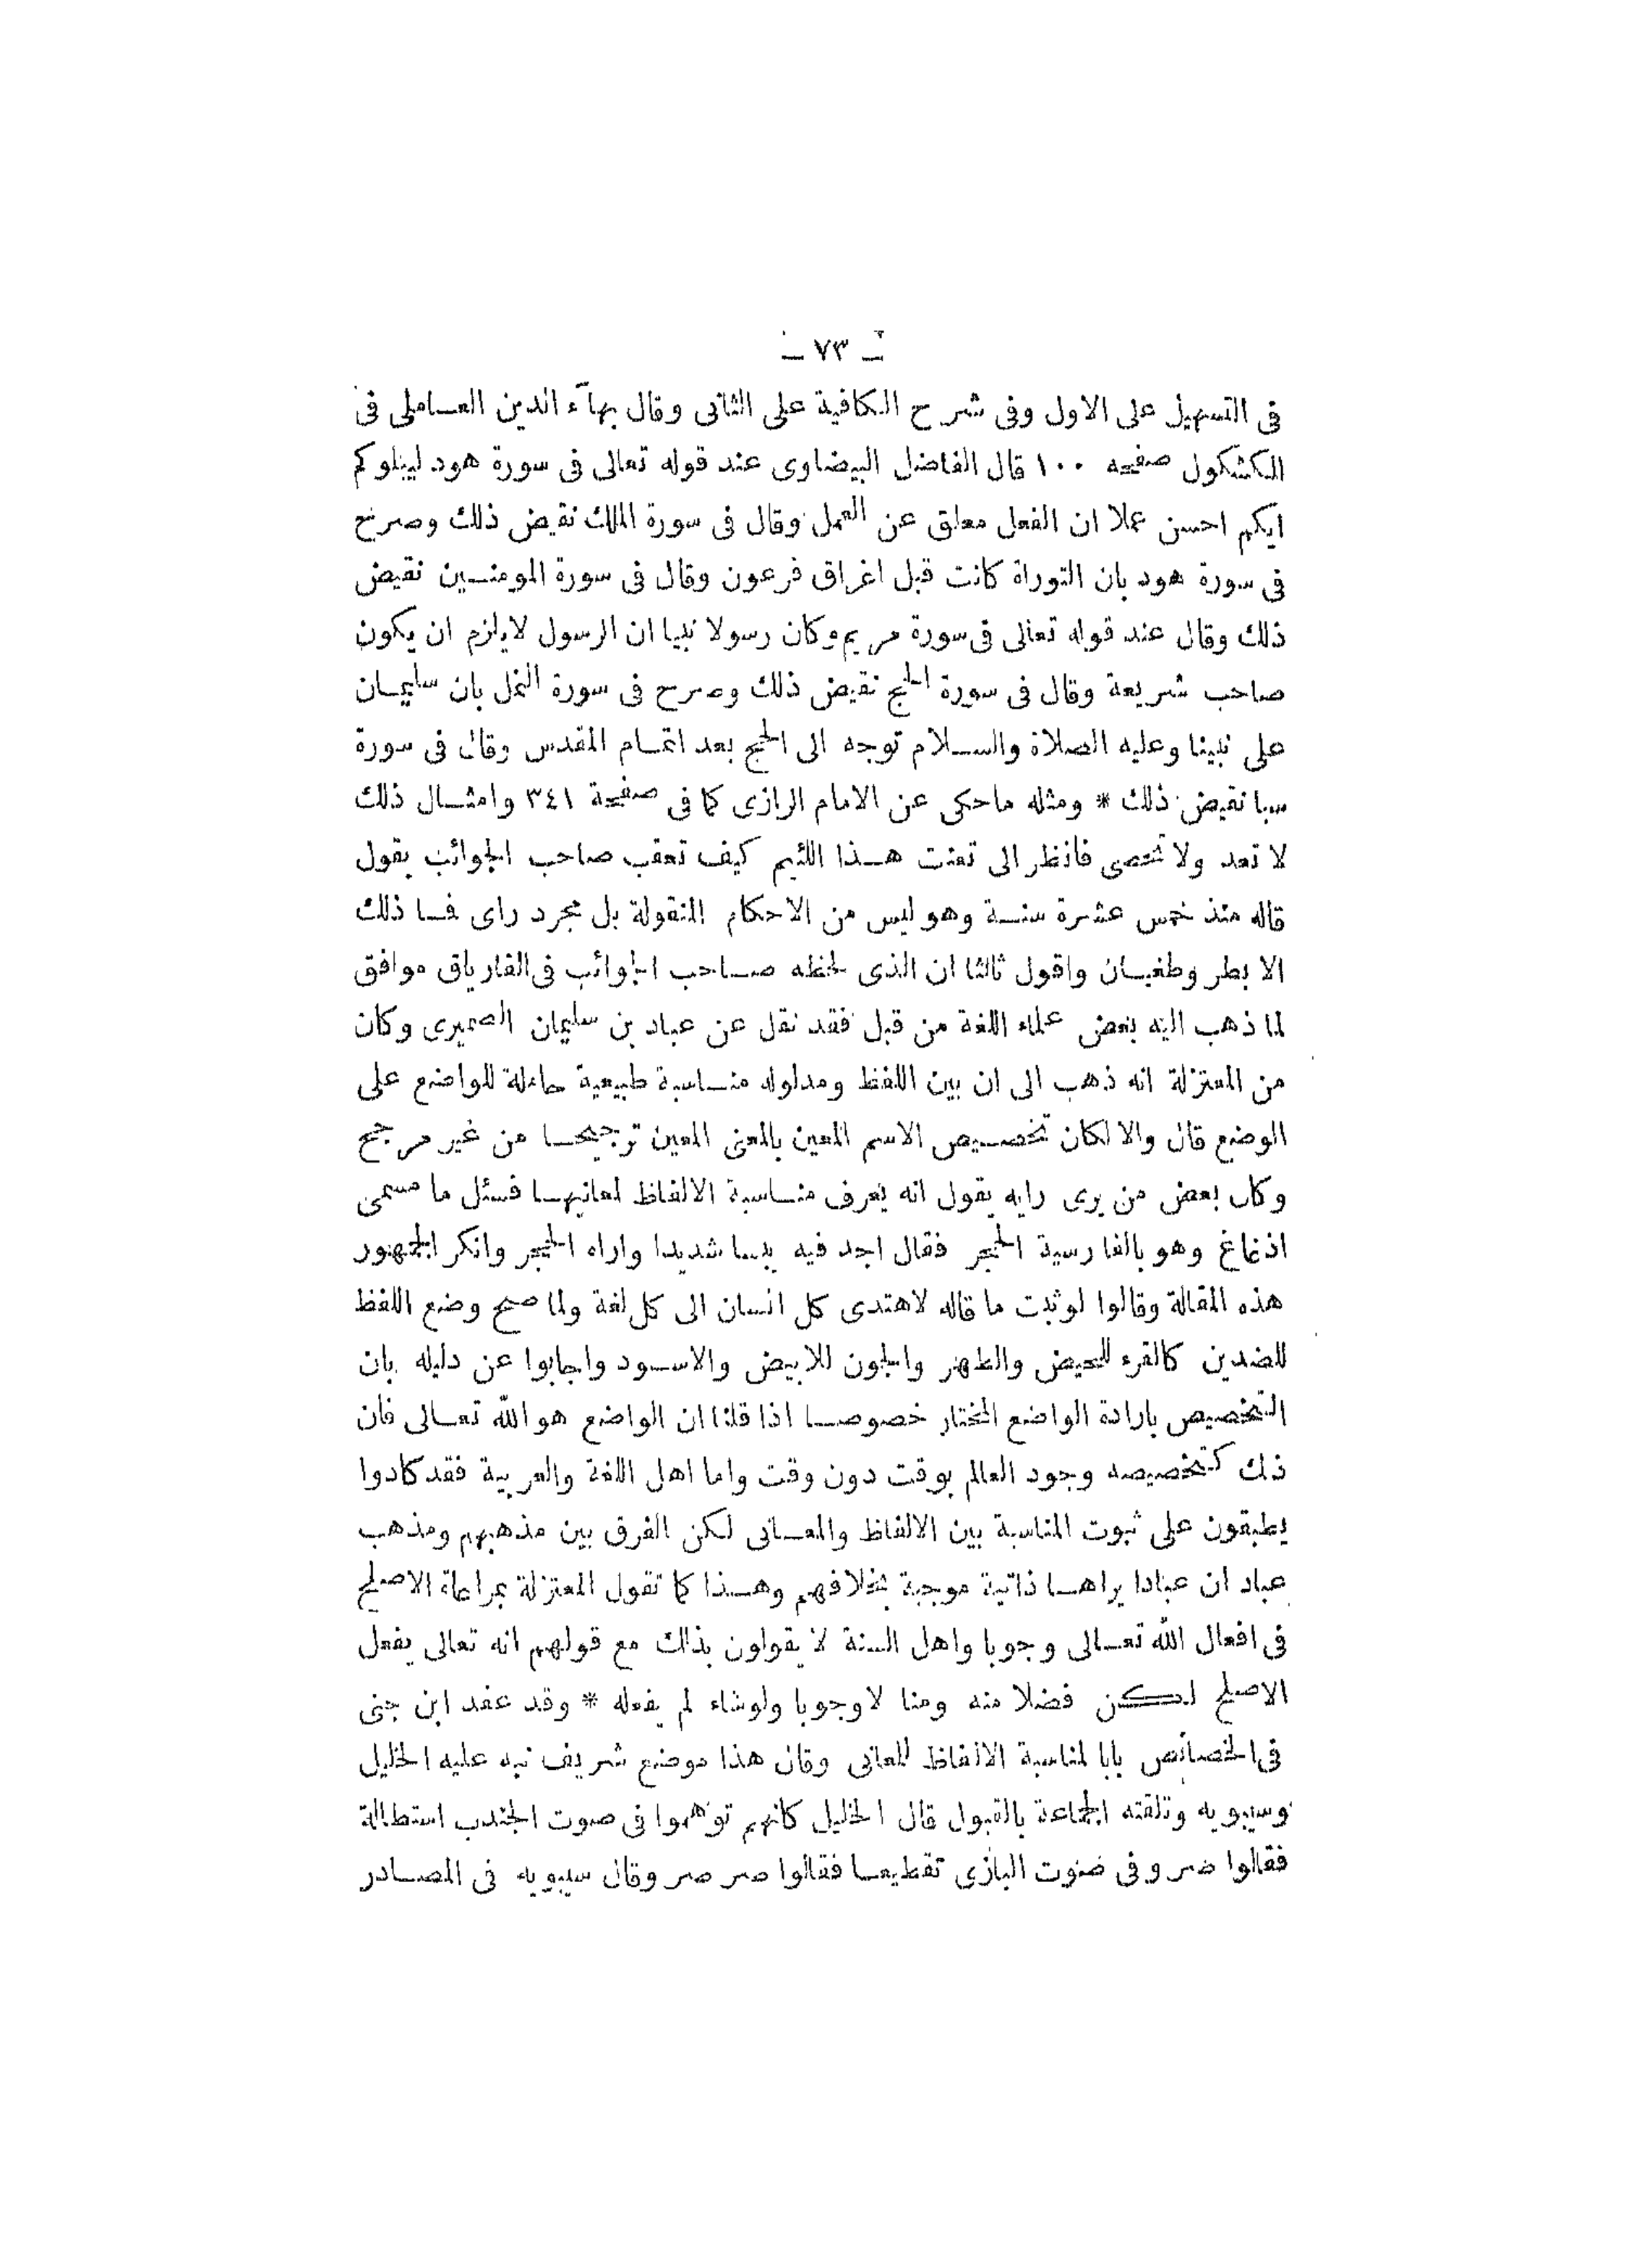 ـ ٧٣ ـ
فى التسهيل على الاول وفى شرح الكافية على الثانى وقال بهآء الدين العــاملى فى
الكشكول صفحه ١٠٠ قال الفاضل البيضاوى عند قوله تعالى فى سورة هود ليبلوكم
ايكم احسن عملا ان الفعل معلق عن العمل وقال فى سورة الملك نقيض ذلك وصرح
فى سورة هود بان التوراة كانت قبل اغراق فرعون وقال فى سورة المومنــين نقيض
ذلك وقال عند قوله تعالى فى سورة مريم وكان رسولا نبيا ان الرسول لا يلزم ان يكون
صاحب شريعة وقال فى سورة الحج نقيض ذلك وصرح فى سورة النمل بان سليمــان
على نبينا وعليه الصلاة والســلام توجه الى الحج بعد اتمــام المقدس وقال فى سورة
سبا نقيض ذلك * ومثله ماحكى عن الامام الرازى كما فى صفحة ٣٤١ وامثــال ذلك
لا تعد ولا تحصى فانظر الى تعنت هــذا اللئيم كيف تعقب صاحب الجوائب بقول
قاله منذ خمس عشرة سنــة وهو ليس من الاحكام المنقولة بل مجرد راى فــا ذلك
الا بطر وطغيــان واقول ثالثا ان الذى لحظه صــاحب الجوائب فى الفارياق موافق
لما ذهب اليه بعض علماء اللغة من قبل فقد نقل عن عباد بن سليمان الصميرى وكان
من المعتزلة انه ذهب الى ان بين اللفظ ومدلوله منــاسبة طبيعية حاملة للواضع على
الوضع قال والا لكان تخصــيص الاسم المعين بالمعنى المعين ترجيحــا من غير مرجح
وكان بعض من يرى رايه يقول انه يعرف منــاسبة الالفاظ لمعانيهــا فسئل ما مسمى
اذغاغ وهو بالفارسية الحجر فقال اجد فيه يبسا شديدا واراه الحجر وانكر الجمهور
هذه المقالة وقالوا لو ثبت ما قاله لاهتدى كل انسان الى كل لغة ولما صح وضع اللفظ
للضدين كالقرء للحيض والطهر والجون للابيض والاســود واجابوا عن دليله بان
التخصيص بارادة الواضع المختار خصوصــا اذا قلنا ان الواضع هو الله تعــالى فان
ذلك كتخصيصه وجود العالم بوقت دون وقت واما اهل اللغة والعربية فقد كادوا
يطبقون على ثبوت المناسبة بين الالفاظ والمعــانى لكن الفرق بين مذهبهم ومذهب
عباد ان عبادا يراهــا ذاتية موجبة بخلافهم وهــذا كما تقول المعتزلة بمراعاة الاصلح
فى افعال الله تعــالى وجوبا واهل السنة لا يقولون بذلك مع قولهم انه تعالى يفعل
الاصلح لكن فضلا منه ومنا لا وجوبا ولوشاء لم يفعله * وقد عقد ابن جنى
فى الخصائص بابا لمناسبة الالفاظ للمعانى وقال هذا موضع شريف نبه عليه الخليل
وسيبويه وتلقته الجماعة بالقبول قال الخليل كانهم توهموا فى صوت الجندب استطالة
فقالوا صر وفى صوت البازى تقطيعــا فقالوا صر صر وقال سيبويه فى المصــادر